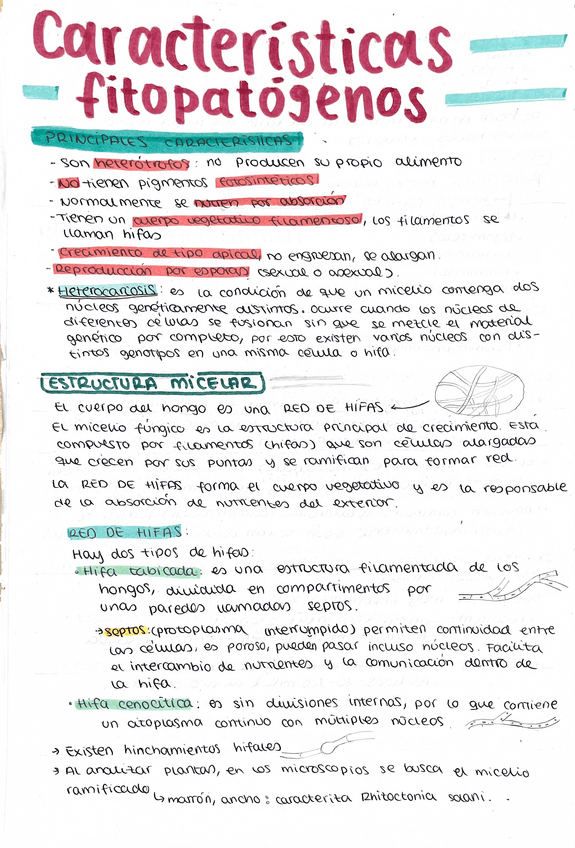 Características
fitopatógenos
PRINCIPALES CARACTERÍSTICAS
- Son heterótrofos: no producen su propio alimento
- NO tienen pigmentos fotosintéticos
- Normalmente se nutren por absorción
- Tienen un cuerpo vegetativo filamentoso, los filamentos se
llaman hifas
- Crecimiento de tipo apical, no engruesan, se alargan.
- Reproducción por esporas (sexual o asexual).
* Heterocariosis: es la condición de que un micelio contenga dos
núcleos genéticamente distintos. Ocurre cuando los núcleos de
diferentes células se fusionan sin que se mezcle el material
genético por completo, por esto existen varios núcleos con dis-
tintos genotipos en una misma célula o hifa.
ESTRUCTURA MICELAR
El cuerpo del hongo es una RED DE HIFAS ←
El micelio fúngico es la estructura principal de crecimiento. Está
compuesto por filamentos (hifas) que son células alargadas
que crecen por sus puntas y se ramifican para formar red.
La RED DE HIFAS forma el cuerpo vegetativo y es la responsable
de la absorción de nutrientes del exterior.
RED DE HIFAS:
Hay dos tipos de hifas:
· Hifa tabicada: es una estructura filamentada de los
hongos, dividida en compartimentos por
unas paredes llamadas septos.
→ septos: (protoplasma interrumpido) permiten continuidad entre
las células, es poroso, pueden pasar incluso núcleos. Facilita
el intercambio de nutrientes y la comunicación dentro de
la hifa.
· Hifa cenocítica: es sin divisiones internas, por lo que contiene
un citoplasma continuo con múltiples núcleos.
→ Existen hinchamientos hifales
→ Al analizar plantas, en los microscopios se busca el micelio
ramificado
↳ marrón, ancho: caracterita Rhitoctonia solani. .